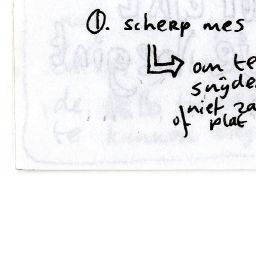 ①. scherp mes
om te
snijde
niet za
of plat